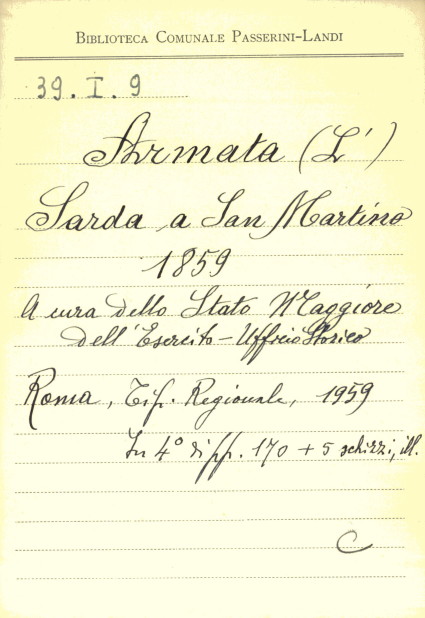 BIBLIOTECA COMUNALE PASSERINI-LANDI
39. I. 9
Armata (L')
Sarda a San Martino
1859
A cura dello Stato Maggiore
dell'Esercito - Ufficio Storico
Roma, Tip. Regionale, 1959
In 4° di pp. 170 + 5 schizzi, ill.
C